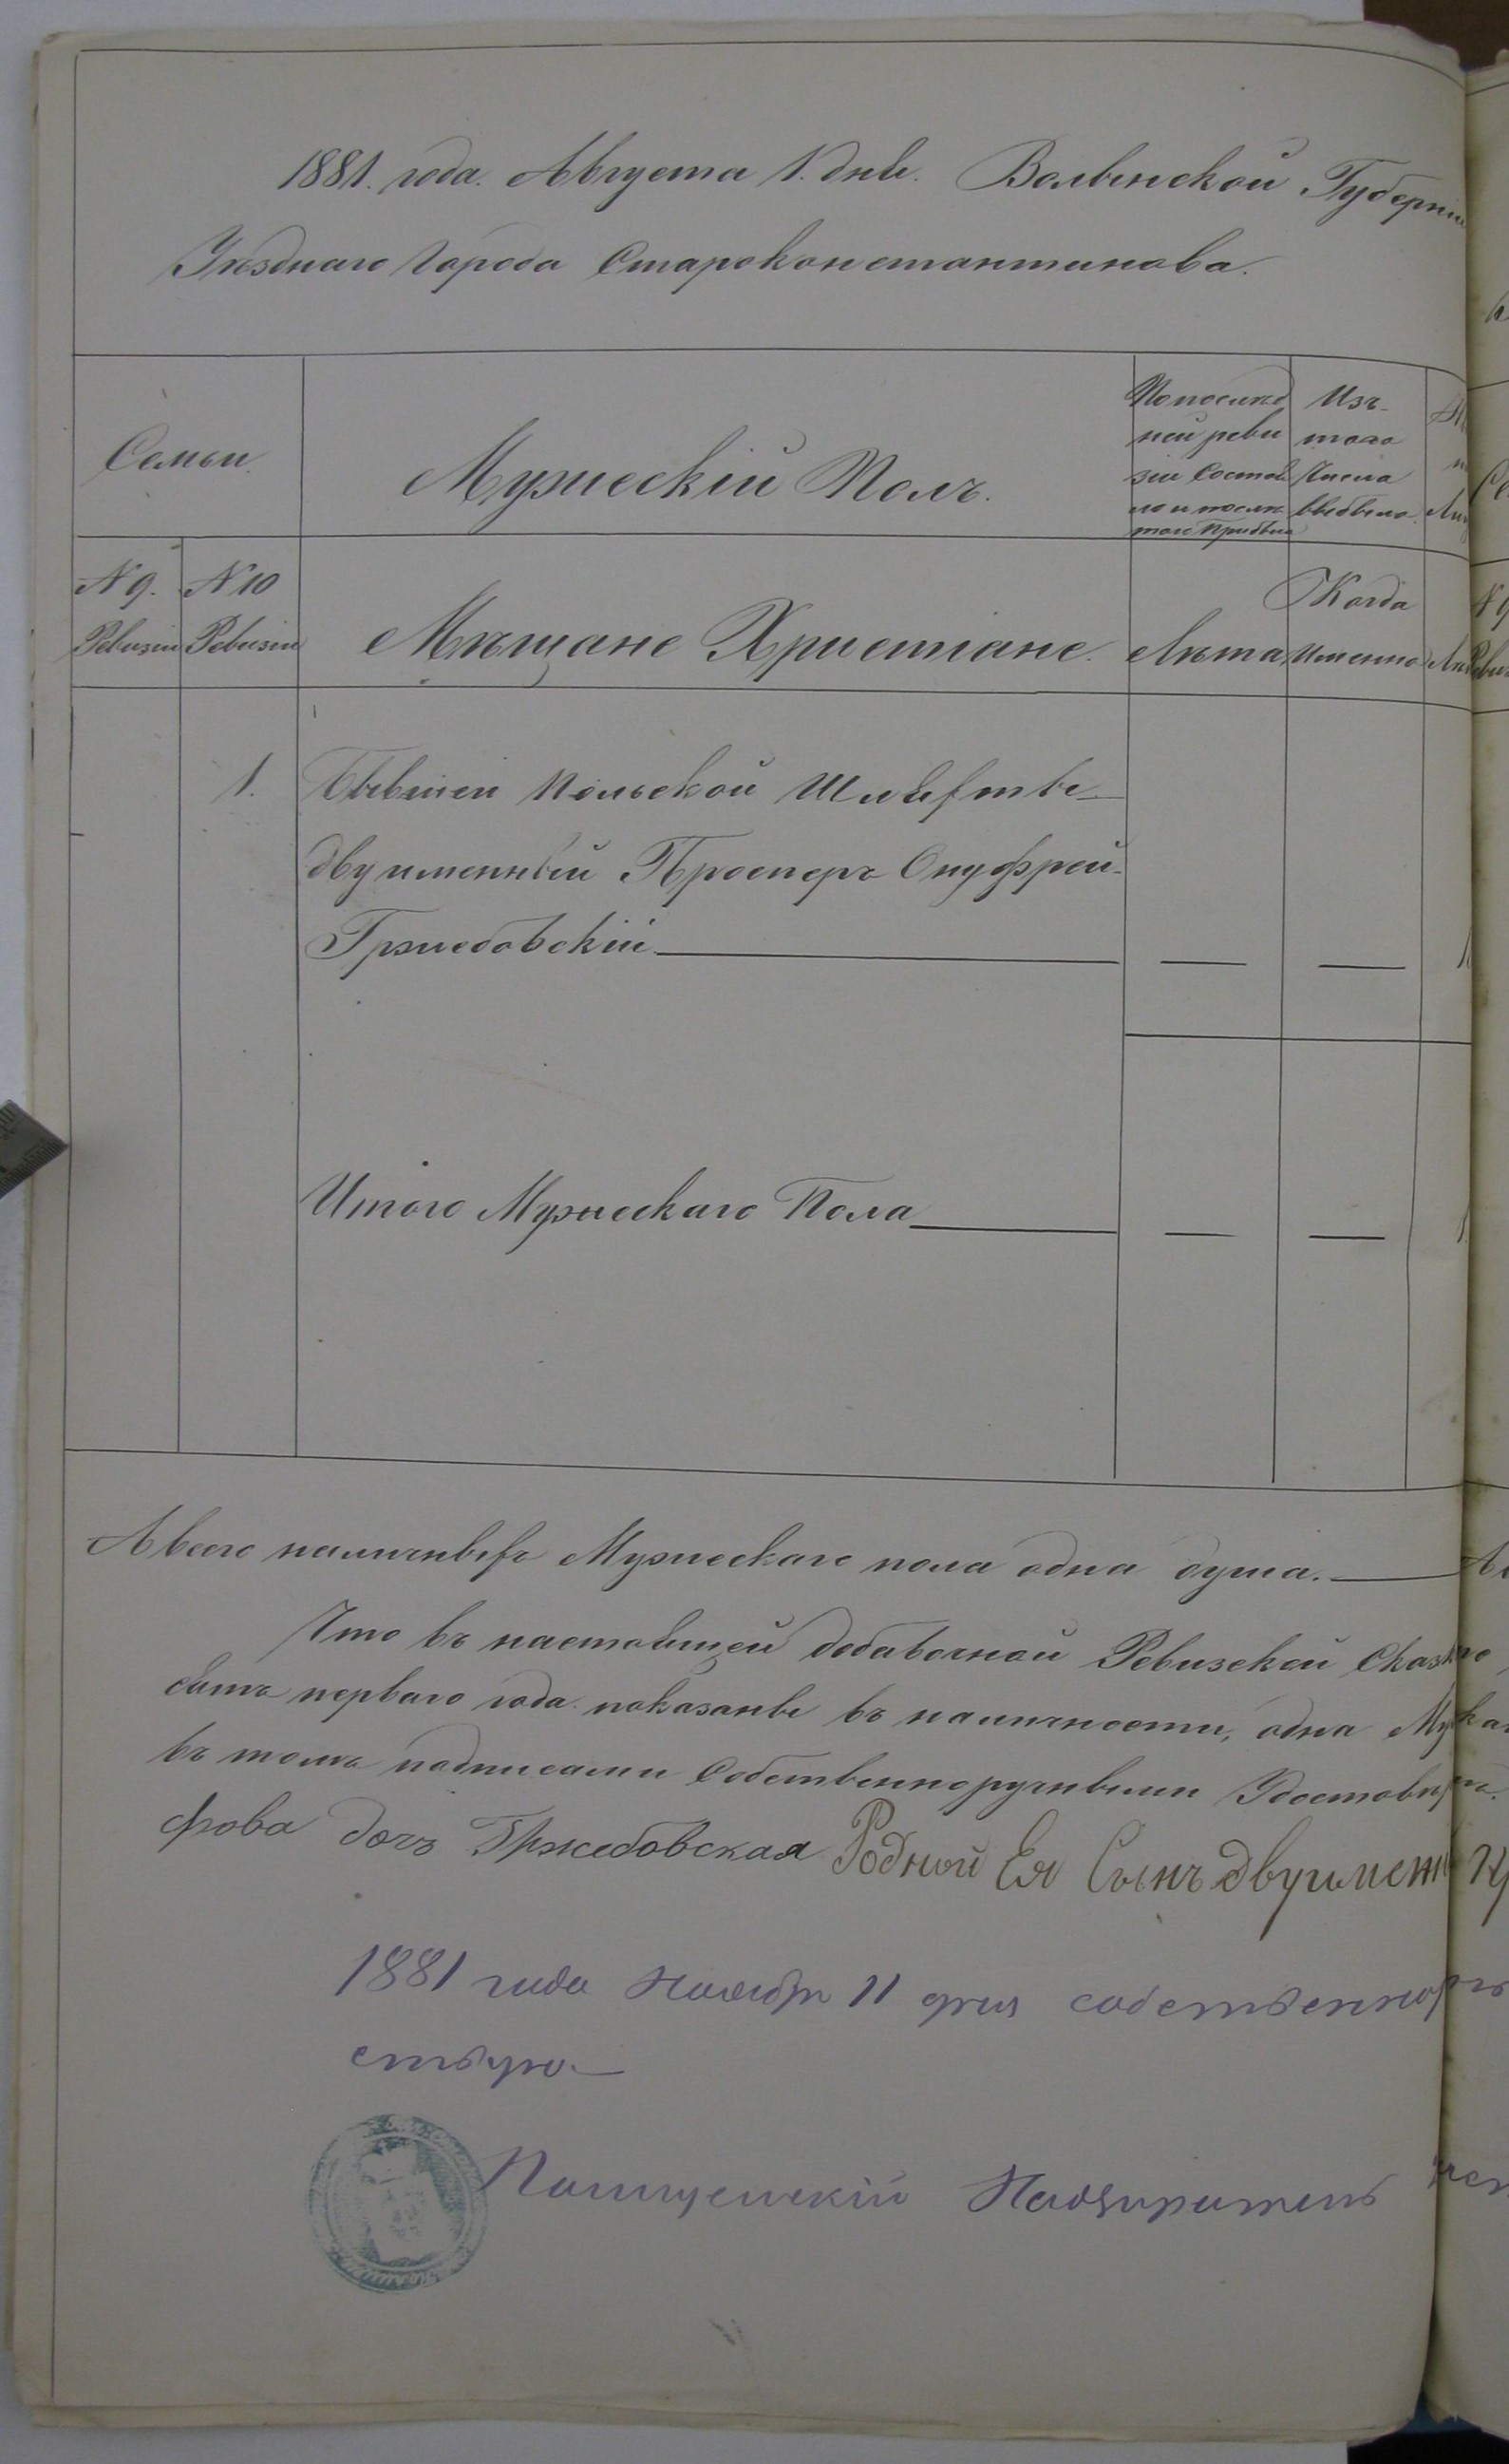 1881. года. Августа 1. дня. Волынской Губерніи
Уѣзднаго Города Староконстантинова.
Семьи.
Мужескій Полъ.
По послѣд
ней реви
зіи Состоя
ло и послѣ
того прибыло
Изъ
того
Числа
выбыло.
№ 9. Ревизіи
№ 10 Ревизіи
Мѣщане Христіане.
Лѣта
Когда
Именно
1. Бывшей Польской Шляхты
двуименный Просперъ Онуфрей
Гржебовскій — —
Итого Мужескаго Пола — —
А всего наличныхъ Мужескаго пола одна душа.
Что въ настоящей добавочной Ревизской Сказкѣ
сятъ перваго года показаны въ наличности, одна
въ томъ подписами Собственноручными
фрова дочь Гржебовская Родной Ея Сынъ двуимен
1881 года Ноября 11 дня
ствую
Полицейскій Надзиратель